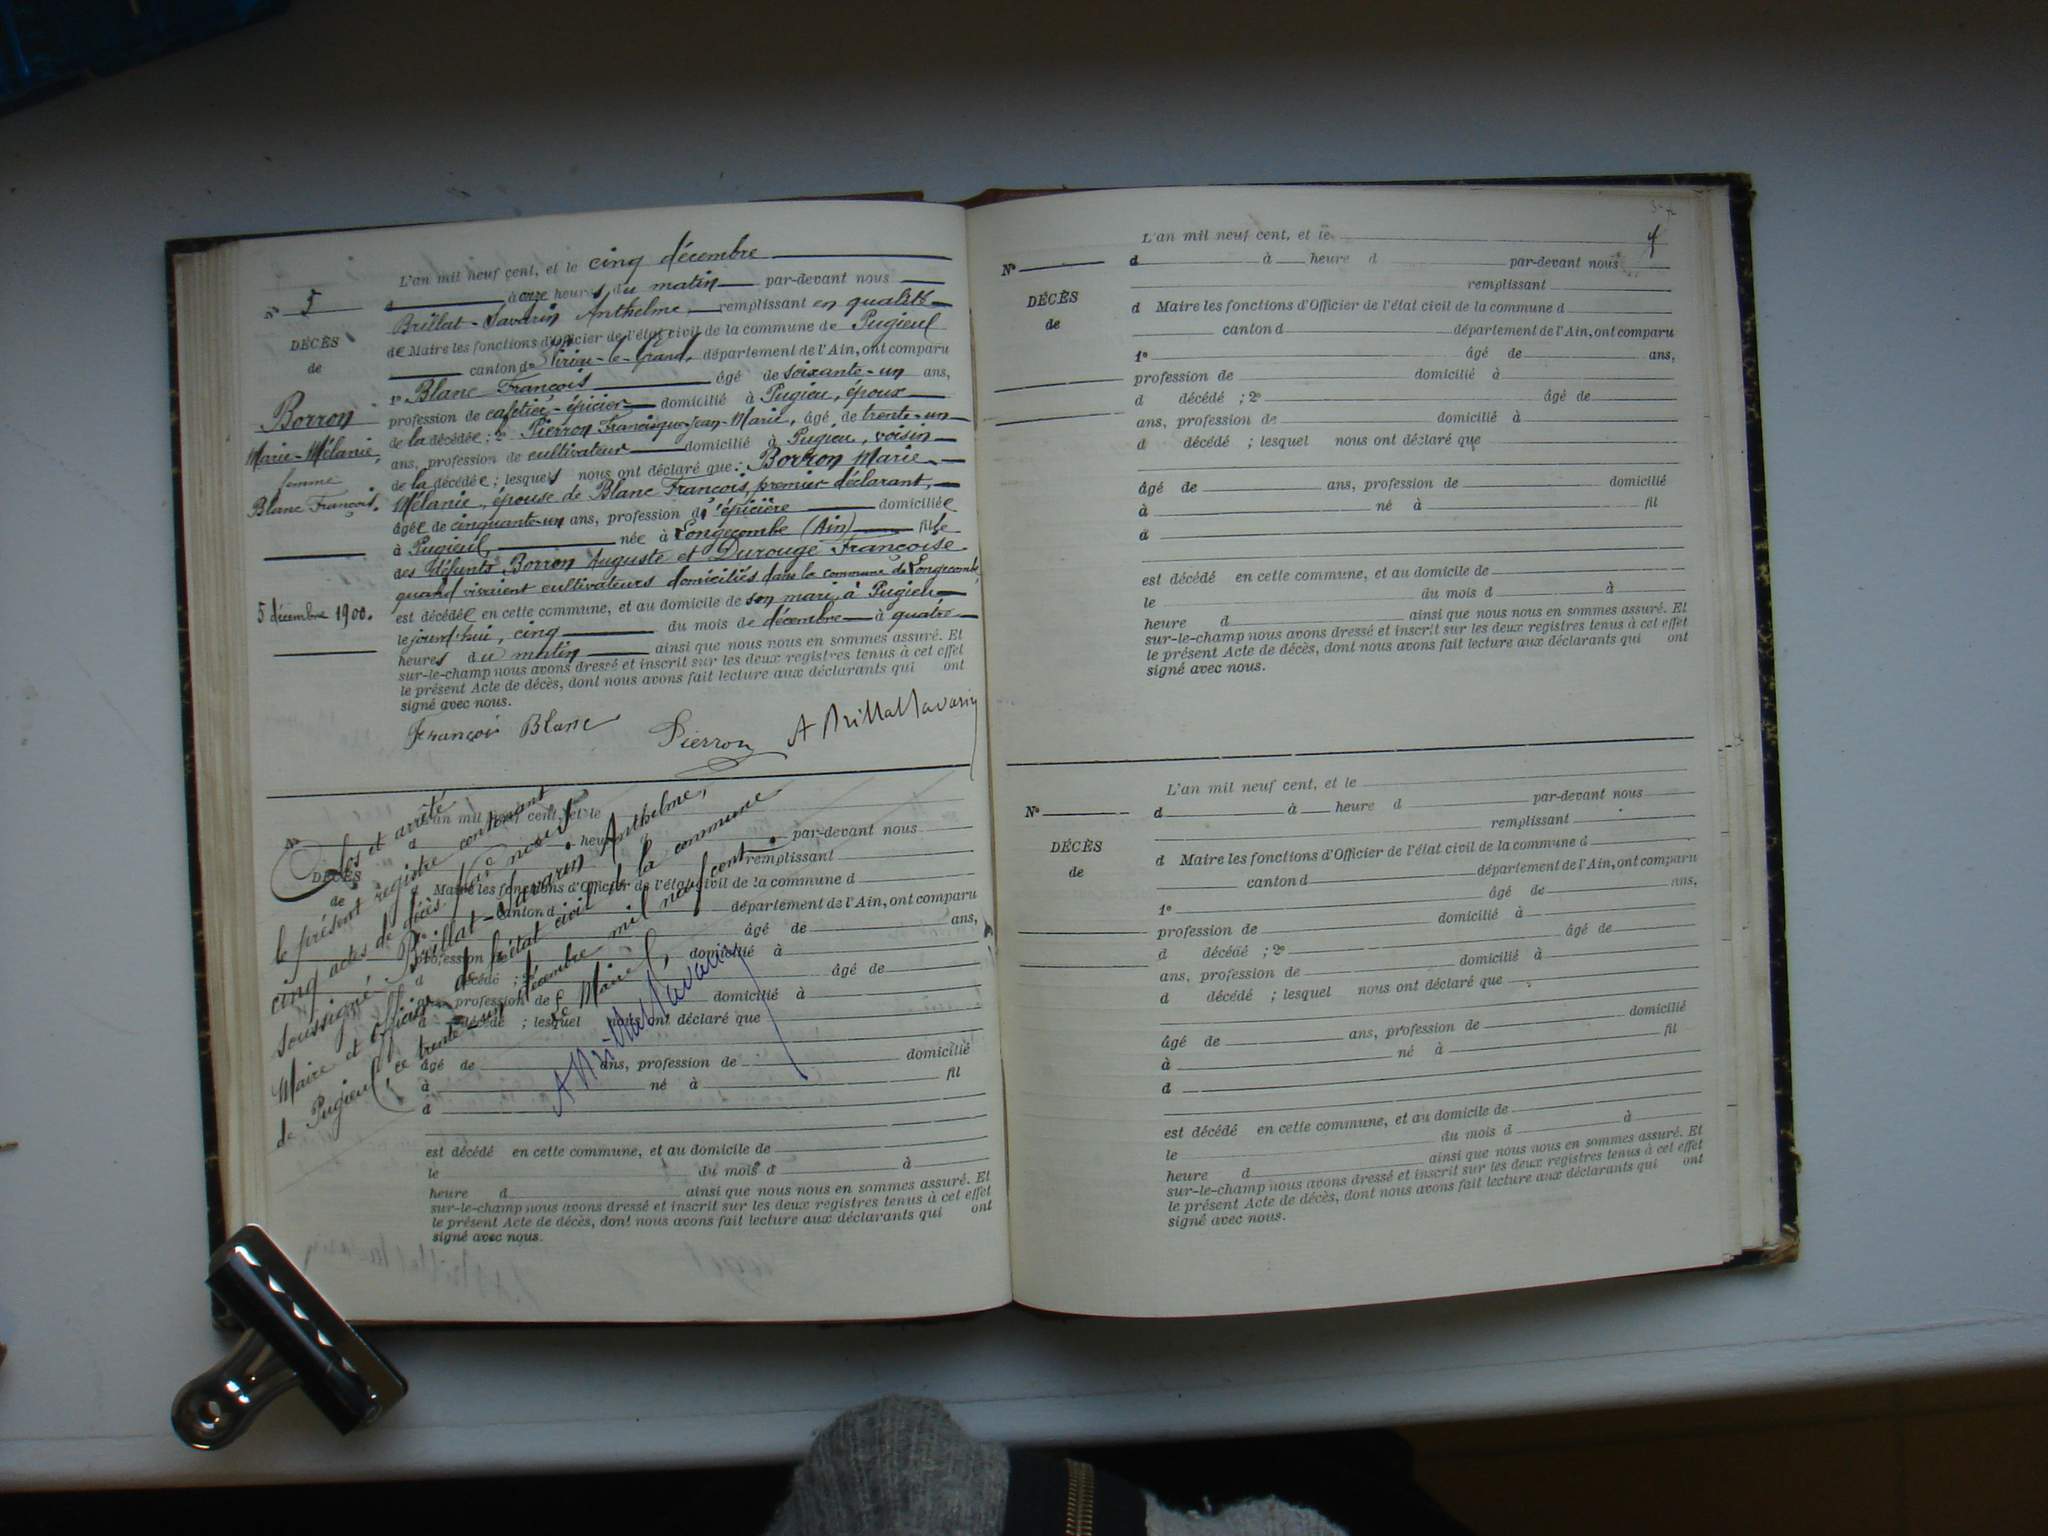 L'an mil neuf cent, et le cinq décembre
d à onze heures du matin par-devant nous
Brillat-Savarin Anthelme, remplissant en qualité
de Maire les fonctions d'Officier de l'état civil de la commune de Pugieu
canton de Virieu-le-Grand, département de l'Ain, ont comparu
1º Blanc François âgé de soixante-un ans,
profession de cafetier-épicier domicilié à Pugieu, époux
de la décédée ; 2º Pierron Francisque-Jean-Marie, âgé de trente-un
ans, profession de cultivateur domicilié à Pugieu, voisin
de la décédée ; lesquels nous ont déclaré que : Borron Marie
Mélanie, épouse de Blanc François, premier déclarant,
âgée de cinquante-un ans, profession d'épicière domiciliée
à Pugieu, née à Longecombe (Ain) fille
des défunts Borron Auguste et Durouge Françoise
quand vivaient cultivateurs domiciliés dans la commune de Longecombe,
est décédée en cette commune, et au domicile de son mari à Pugieu
le jourd'hui, cinq du mois de décembre à quatre
heures du matin ainsi que nous nous en sommes assuré. Et
sur-le-champ nous avons dressé et inscrit sur les deux registres tenus à cet effet
le présent Acte de décès, dont nous avons fait lecture aux déclarants qui ont
signé avec nous.
François Blanc Pierron A Brillat Savarin
Nº 5
DÉCÈS
de
Borron
Marie-Mélanie,
femme
Blanc François.
5 décembre 1900.
Clos et arrêté
le présent registre contenant
cinq actes de décès. Par nous
soussigné Brillat-Savarin Anthelme,
Maire et Officier de l'état civil de la commune
de Pugieu, ce trente-un décembre mil neuf cent.
Le Maire,
A Brillat Savarin
Nº
DÉCÈS
de
L'an mil neuf cent, et le
d à heure d par-devant nous
remplissant
d Maire les fonctions d'Officier de l'état civil de la commune d
canton d département de l'Ain, ont comparu
âgé de ans,
profession de domicilié à
d décédé ; 2º âgé de
ans, profession de domicilié à
d décédé ; lesquel nous ont déclaré que
âgé de ans, profession de domicilié
à né à fil
d
est décédé en cette commune, et au domicile de
le du mois d à
heure d ainsi que nous nous en sommes assuré. Et
sur-le-champ nous avons dressé et inscrit sur les deux registres tenus à cet effet
le présent Acte de décès, dont nous avons fait lecture aux déclarants qui ont
signé avec nous.
Nº
DÉCÈS
de
L'an mil neuf cent, et le
d à heure d par-devant nous
remplissant
d Maire les fonctions d'Officier de l'état civil de la commune d
canton d département de l'Ain, ont comparu
1º âgé de ans,
profession de domicilié à
d décédé ; 2º âgé de
ans, profession de domicilié à
d décédé ; lesquel nous ont déclaré que
âgé de ans, profession de domicilié
à né à fil
d
est décédé en cette commune, et au domicile de
le du mois d à
heure d ainsi que nous nous en sommes assuré. Et
sur-le-champ nous avons dressé et inscrit sur les deux registres tenus à cet effet
le présent Acte de décès, dont nous avons fait lecture aux déclarants qui ont
signé avec nous.
Nº
DÉCÈS
de
L'an mil neuf cent, et le
d à heure d par-devant nous
remplissant
d Maire les fonctions d'Officier de l'état civil de la commune d
canton d département de l'Ain, ont comparu
1º âgé de ans,
profession de domicilié à
d décédé ; 2º âgé de
ans, profession de domicilié à
d décédé ; lesquel nous ont déclaré que
âgé de ans, profession de domicilié
à né à fil
d
est décédé en cette commune, et au domicile de
le du mois d à
heure d ainsi que nous nous en sommes assuré. Et
sur-le-champ nous avons dressé et inscrit sur les deux registres tenus à cet effet
le présent Acte de décès, dont nous avons fait lecture aux déclarants qui ont
signé avec nous.